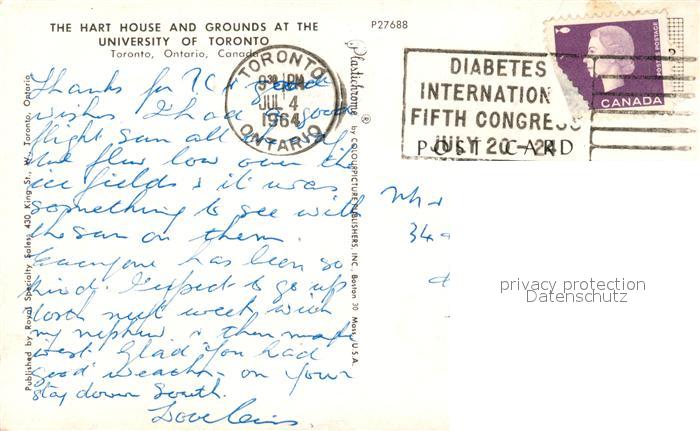 THE HART HOUSE AND GROUNDS AT THE
UNIVERSITY OF TORONTO
Toronto, Ontario, Canada
P27688
Thanks for
wishes I had a good
flight sun all the
We flew low over the
ice fields & it was
something to see with
the sun on them.
Everyone has been so
kind. I expect to go up
North next week with
my nephew & then
west. Glad you had
good weather on your
stay down South.
Love
Published by Royal Specialty Sales, 430 King St., W., Toronto, Ontario
Plastichrome ® by COLOURPICTURE PUBLISHERS, INC., Boston 30, Mass., U.S.A.
TORONTO
9 30 PM
JUL 4
1964
ONTARIO
DIABETES
INTERNATION
FIFTH CONGRESS
JULY 20 - 24
POST CARD
POSTES POSTAGE
CANADA
34
privacy protection
Datenschutz